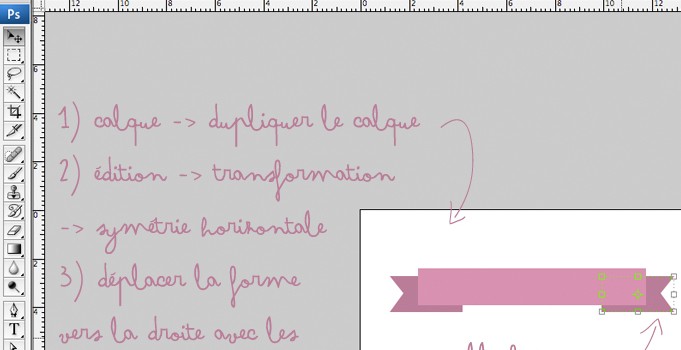 Ps
12 10 8 6 4 2 0 2 4 6 8 10 12
8
6
4
2
0
2
4
1) calque -> dupliquer le calque
2) édition -> transformation
-> symétrie horizontale
3) déplacer la forme
vers la droite avec les
T